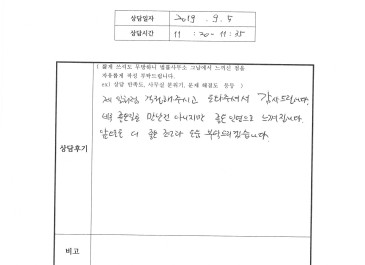 상담일자 2019. 9. 5
상담시간 11:20-11:35
( 짧게 쓰셔도 무방하니 법률사무소 그날에서 느끼신 점을
자유롭게 작성 부탁드립니다.
ex) 상담 만족도, 사무실 분위기, 문제 해결도 등등 )
제 입장에서 걱정해주시고 도와주셔서 감사드립니다.
좋은일로 만난건 아니지만 좋은 인연으로 느껴집니다.
앞으로도 더 좋은 모습 부탁드리겠습니다.
상담후기
비고